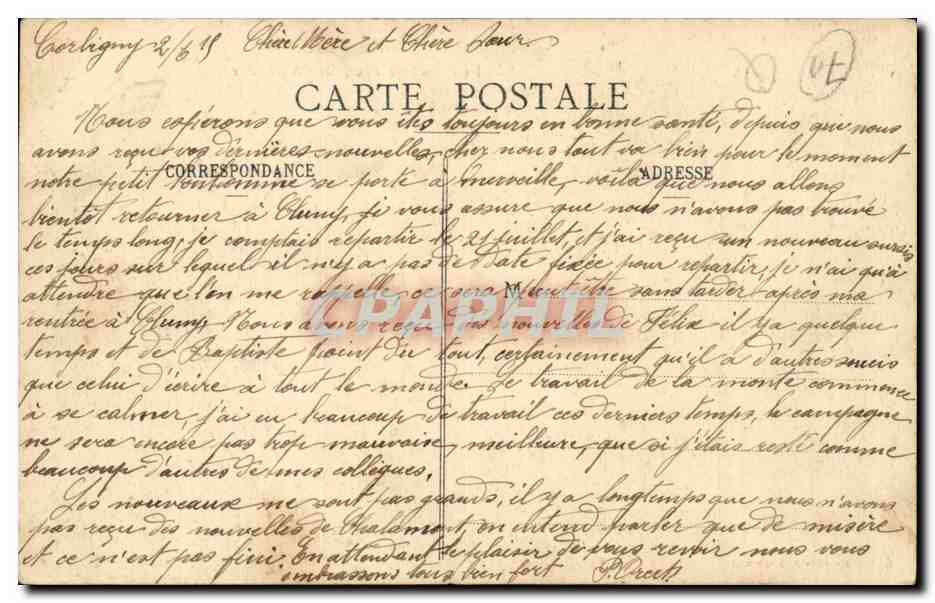 Corbigny 2/6 15 Chère Mère et Chère Sœur.
CARTE POSTALE
Nous espérons que vous êtes toujours en bonne santé, depuis que nous
avons reçu vos dernières nouvelles, chez nous tout va bien pour le moment
CORRESPONDANCE ADRESSE
notre petit bonhomme se porte à merveille, voilà que nous allons
bientôt retourner à Cluny, je vous assure que nous n'avons pas trouvé
le temps long, je comptais repartir le 21 juillet, et j'ai reçu un nouveau sursis
ces jours sur lequel il n'y a pas de date fixée pour repartir, je n'ai qu'à
attendre que l'on me rappelle, ce sera peut être sans tarder après ma
M
CPAPHIL
rentrée à Cluny. Nous avons reçu des nouvelles de Félix il y a quelque
temps et de Baptiste point du tout, certainement qu'il a d'autres soucis
que celui d'écrire à tout le monde. Le travail de la monte commence
à se calmer, j'ai eu beaucoup de travail ces derniers temps, la campagne
ne sera encore pas trop mauvaise, meilleure, que si j'étais resté comme
beaucoup d'autres de mes collègues.
Les nouveaux ne sont pas grands, il y a longtemps que nous n'avons
pas reçu des nouvelles de Chalamont, on entend parler que de misère
et ce n'est pas fini. En attendant le plaisir de vous revoir nous vous
embrassons tous bien fort P.